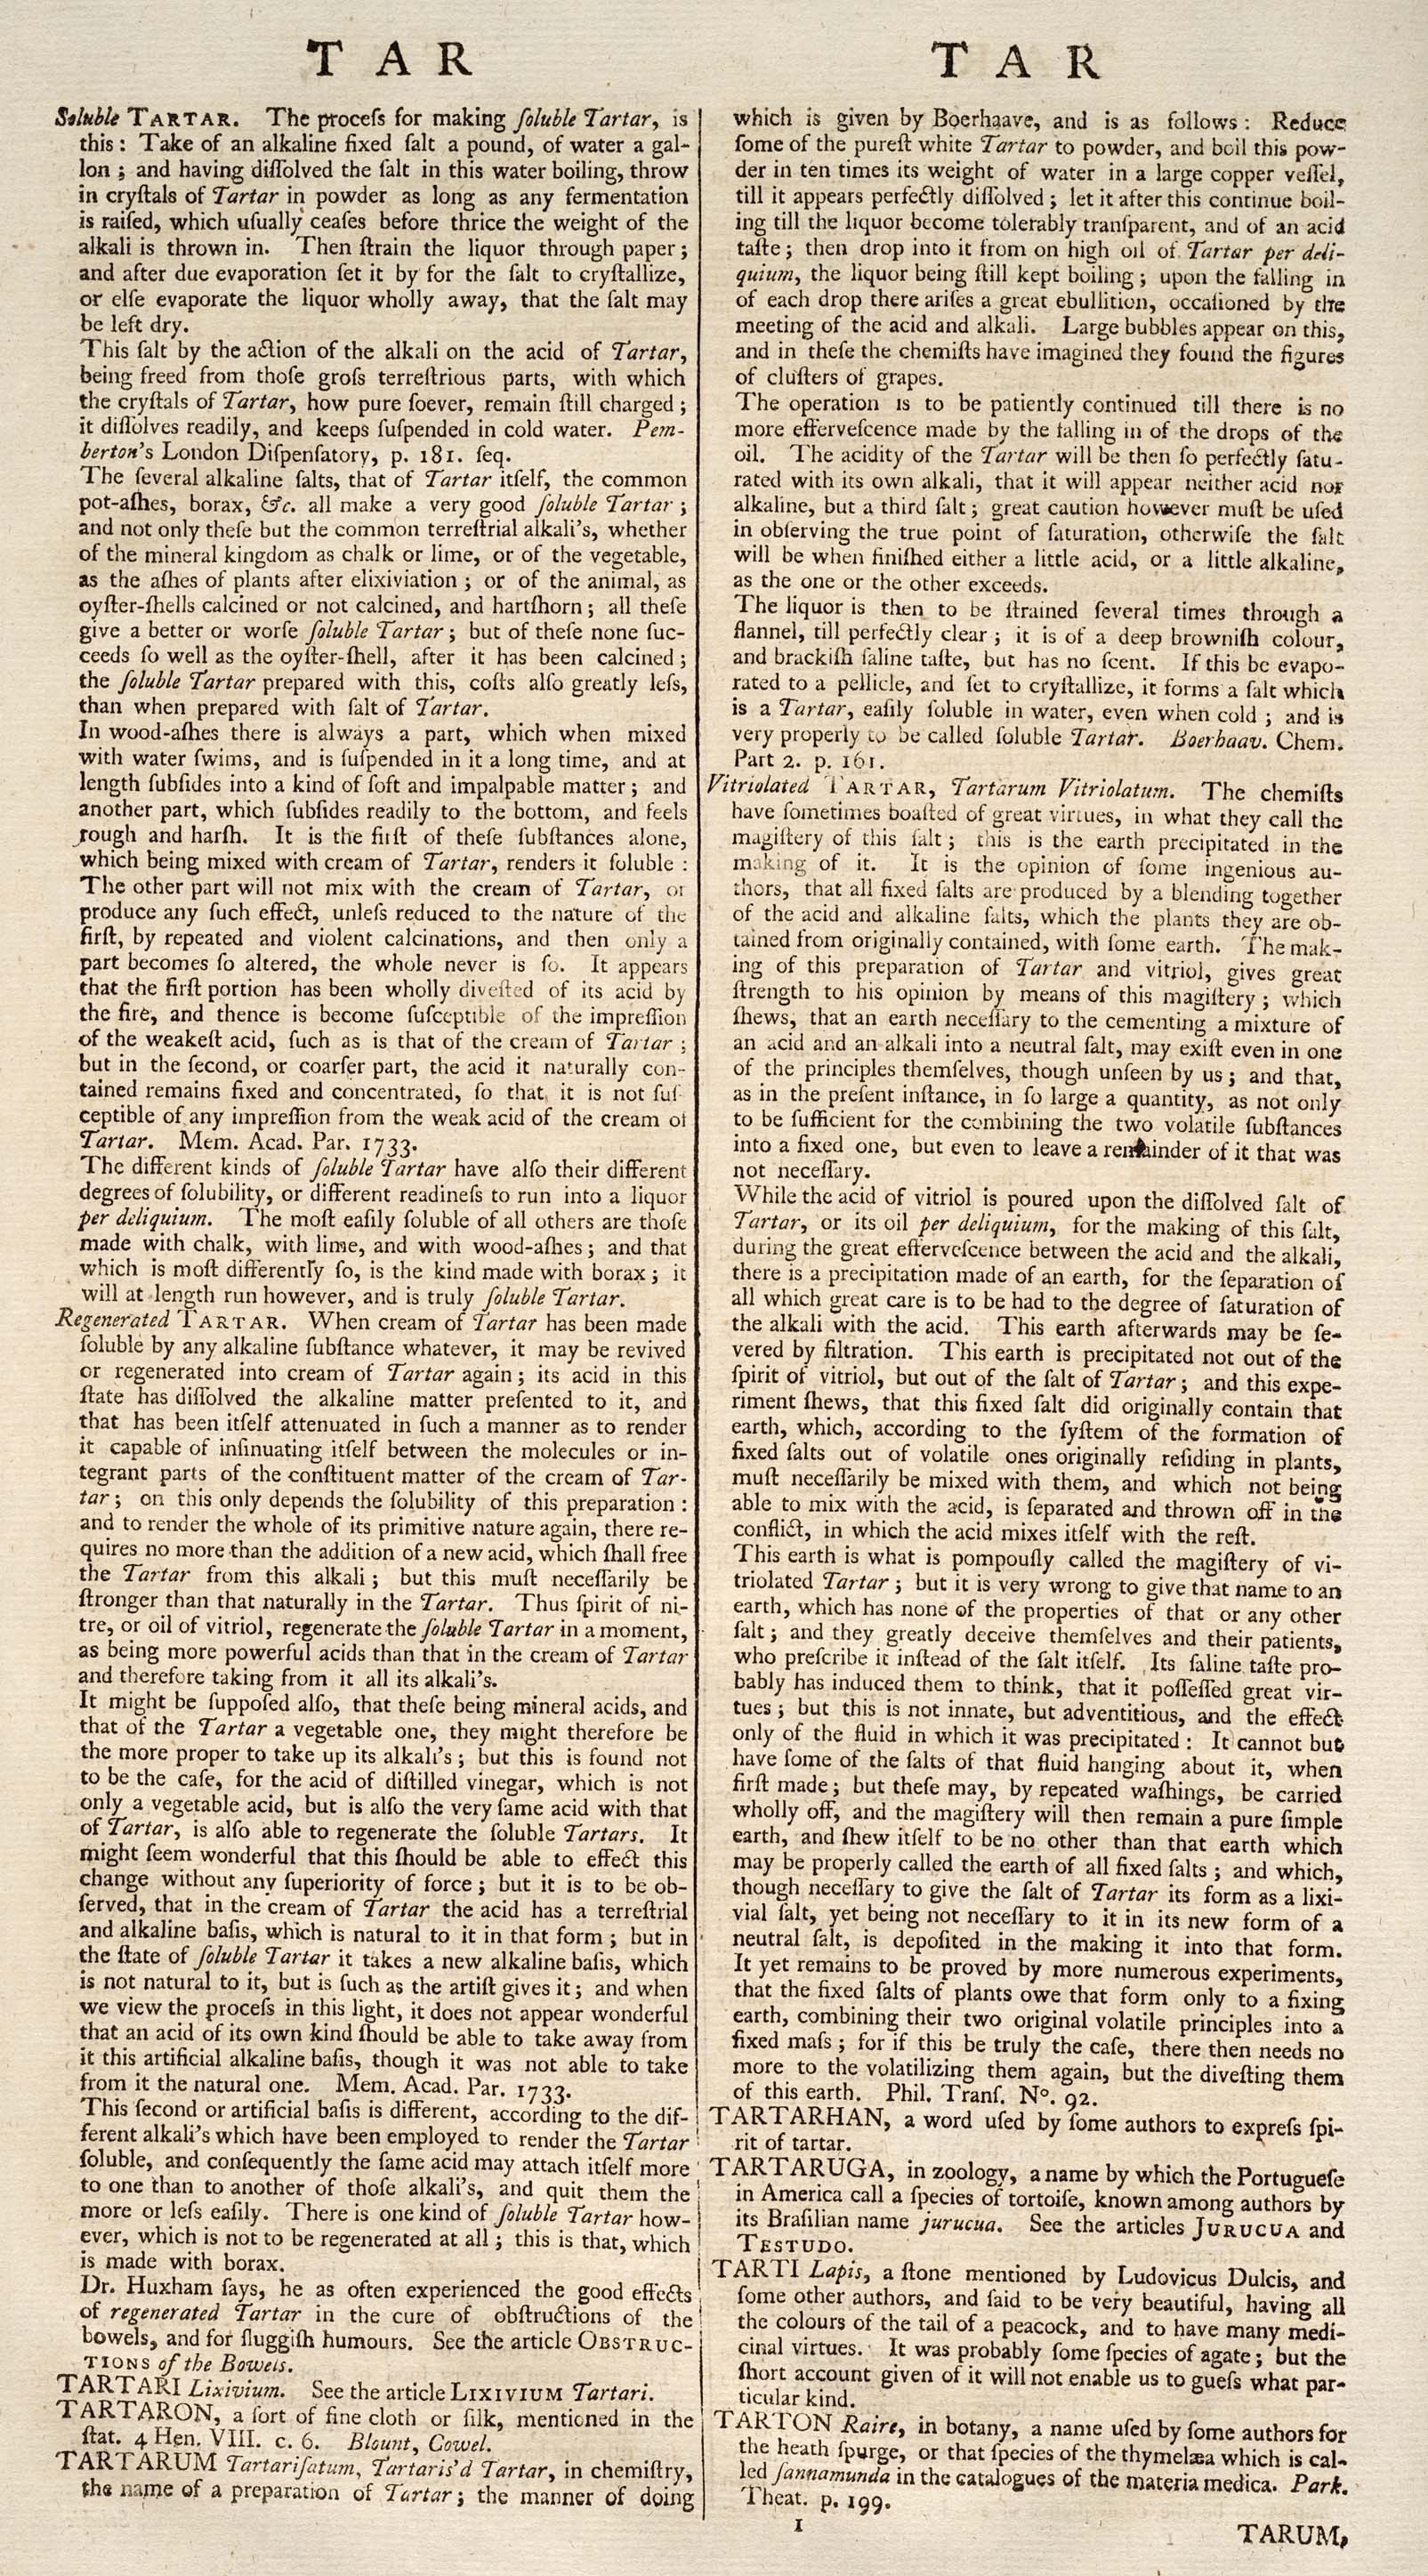 T A R
Soluble TARTAR. The proceſs for making ſoluble Tartar, is
this: Take of an alkaline fixed ſalt a pound, of water a gal-
lon; and having diſſolved the ſalt in this water boiling, throw
in cryſtals of Tartar in powder as long as any fermentation
is raiſed, which uſually ceaſes before thrice the weight of the
alkali is thrown in. Then ſtrain the liquor through paper;
and after due evaporation ſet it by for the ſalt to cryſtallize,
or elſe evaporate the liquor wholly away, that the ſalt may
be left dry.
This ſalt by the action of the alkali on the acid of Tartar,
being freed from thoſe groſs terreſtrious parts, with which
the cryſtals of Tartar, how pure ſoever, remain ſtill charged;
it diſſolves readily, and keeps ſuſpended in cold water. Pem-
berton's London Diſpenſatory, p. 181. ſeq.
The ſeveral alkaline ſalts, that of Tartar itſelf, the common
pot-aſhes, borax, &c. all make a very good ſoluble Tartar;
and not only theſe but the common terreſtrial alkali's, whether
of the mineral kingdom as chalk or lime, or of the vegetable,
as the aſhes of plants after elixiviation; or of the animal, as
oyſter-ſhells calcined or not calcined, and hartſhorn; all theſe
give a better or worſe ſoluble Tartar; but of theſe none ſuc-
ceeds ſo well as the oyſter-ſhell, after it has been calcined;
the ſoluble Tartar prepared with this, coſts alſo greatly leſs,
than when prepared with ſalt of Tartar.
In wood-aſhes there is always a part, which when mixed
with water ſwims, and is ſuſpended in it a long time, and at
length ſubſides into a kind of ſoft and impalpable matter; and
another part, which ſubſides readily to the bottom, and feels
rough and harſh. It is the firſt of theſe ſubſtances alone,
which being mixed with cream of Tartar, renders it ſoluble:
The other part will not mix with the cream of Tartar, or
produce any ſuch effect, unleſs reduced to the nature of the
firſt, by repeated and violent calcinations, and then only a
part becomes ſo altered, the whole never is ſo. It appears
that the firſt portion has been wholly diveſted of its acid by
the fire, and thence is become ſuſceptible of the impreſſion
of the weakeſt acid, ſuch as is that of the cream of Tartar;
but in the ſecond, or coarſer part, the acid it naturally con-
tained remains fixed and concentrated, ſo that it is not ſuſ
ceptible of any impreſſion from the weak acid of the cream of
Tartar. Mem. Acad. Par. 1733.
The different kinds of ſoluble Tartar have alſo their different
degrees of ſolubility, or different readineſs to run into a liquor
per deliquium. The moſt eaſily ſoluble of all others are thoſe
made with chalk, with lime, and with wood-aſhes; and that
which is moſt differently ſo, is the kind made with borax; it
will at length run however, and is truly ſoluble Tartar.
Regenerated TARTAR. When cream of Tartar has been made
ſoluble by any alkaline ſubſtance whatever, it may be revived
or regenerated into cream of Tartar again; its acid in this
ſtate has diſſolved the alkaline matter preſented to it, and
that has been itſelf attenuated in ſuch a manner as to render
it capable of inſinuating itſelf between the molecules or in-
tegrant parts of the conſtituent matter of the cream of Tar-
tar; on this only depends the ſolubility of this preparation:
and to render the whole of its primitive nature again, there re-
quires no more than the addition of a new acid, which ſhall free
the Tartar from this alkali; but this muſt neceſſarily be
ſtronger than that naturally in the Tartar. Thus ſpirit of ni-
tre, or oil of vitriol, regenerate the ſoluble Tartar in a moment,
as being more powerful acids than that in the cream of Tartar
and therefore taking from it all its alkali's.
It might be ſuppoſed alſo, that theſe being mineral acids, and
that of the Tartar a vegetable one, they might therefore be
the more proper to take up its alkali's; but this is found not
to be the caſe, for the acid of diſtilled vinegar, which is not
only a vegetable acid, but is alſo the very ſame acid with that
of Tartar, is alſo able to regenerate the ſoluble Tartars. It
might ſeem wonderful that this ſhould be able to effect this
change without any ſuperiority of force; but it is to be ob-
ſerved, that in the cream of Tartar the acid has a terreſtrial
and alkaline baſis, which is natural to it in that form; but in
the ſtate of ſoluble Tartar it takes a new alkaline baſis, which
is not natural to it, but is ſuch as the artiſt gives it; and when
we view the proceſs in this light, it does not appear wonderful
that an acid of its own kind ſhould be able to take away from
it this artificial alkaline baſis, though it was not able to take
from it the natural one. Mem. Acad. Par. 1733.
This ſecond or artificial baſis is different, according to the dif-
ferent alkali's which have been employed to render the Tartar
ſoluble, and conſequently the ſame acid may attach itſelf more
to one than to another of thoſe alkali's, and quit them the
more or leſs eaſily. There is one kind of ſoluble Tartar how-
ever, which is not to be regenerated at all; this is that, which
is made with borax.
Dr. Huxham ſays, he as often experienced the good effects
of regenerated Tartar in the cure of obſtructions of the
bowels, and for ſluggiſh humours. See the article OBSTRUC-
TIONS of the Bowels.
TARTARI Lixivium. See the article LIXIVIUM Tartari.
TARTARON, a ſort of fine cloth or ſilk, mentioned in the
ſtat. 4 Hen. VIII. c. 6. Blount, Cowel.
TARTARUM Tartariſatum, Tartaris'd Tartar, in chemiſtry,
the name of a preparation of Tartar; the manner of doing
T A R
which is given by Boerhaave, and is as follows: Reduce
ſome of the pureſt white Tartar to powder, and boil this pow-
der in ten times its weight of water in a large copper veſſel,
till it appears perfectly diſſolved; let it after this continue boil-
ing till the liquor become tolerably tranſparent, and of an acid
taſte; then drop into it from on high oil of Tartar per deli-
quium, the liquor being ſtill kept boiling; upon the falling in
of each drop there ariſes a great ebullition, occaſioned by the
meeting of the acid and alkali. Large bubbles appear on this,
and in theſe the chemiſts have imagined they found the figures
of cluſters of grapes.
The operation is to be patiently continued till there is no
more efferveſcence made by the falling in of the drops of the
oil. The acidity of the Tartar will be then ſo perfectly ſatu-
rated with its own alkali, that it will appear neither acid nor
alkaline, but a third ſalt; great caution however muſt be uſed
in obſerving the true point of ſaturation, otherwiſe the ſalt
will be when finiſhed either a little acid, or a little alkaline,
as the one or the other exceeds.
The liquor is then to be ſtrained ſeveral times through a
flannel, till perfectly clear; it is of a deep browniſh colour,
and brackiſh ſaline taſte, but has no ſcent. If this be evapo-
rated to a pellicle, and ſet to cryſtallize, it forms a ſalt which
is a Tartar, eaſily ſoluble in water, even when cold; and is
very properly to be called ſoluble Tartar. Boerhaav. Chem.
Part 2. p. 161.
Vitriolated TARTAR, Tartarum Vitriolatum. The chemiſts
have ſometimes boaſted of great virtues, in what they call the
magiſtery of this ſalt; this is the earth precipitated in the
making of it. It is the opinion of ſome ingenious au-
thors, that all fixed ſalts are produced by a blending together
of the acid and alkaline ſalts, which the plants they are ob-
tained from originally contained, with ſome earth. The mak-
ing of this preparation of Tartar and vitriol, gives great
ſtrength to his opinion by means of this magiſtery; which
ſhews, that an earth neceſſary to the cementing a mixture of
an acid and an alkali into a neutral ſalt, may exiſt even in one
of the principles themſelves, though unſeen by us; and that,
as in the preſent inſtance, in ſo large a quantity, as not only
to be ſufficient for the combining the two volatile ſubſtances
into a fixed one, but even to leave a remainder of it that was
not neceſſary.
While the acid of vitriol is poured upon the diſſolved ſalt of
Tartar, or its oil per deliquium, for the making of this ſalt,
during the great efferveſcence between the acid and the alkali,
there is a precipitation made of an earth, for the ſeparation of
all which great care is to be had to the degree of ſaturation of
the alkali with the acid. This earth afterwards may be ſe-
vered by filtration. This earth is precipitated not out of the
ſpirit of vitriol, but out of the ſalt of Tartar; and this expe-
riment ſhews, that this fixed ſalt did originally contain that
earth, which, according to the ſyſtem of the formation of
fixed ſalts out of volatile ones originally reſiding in plants,
muſt neceſſarily be mixed with them, and which not being
able to mix with the acid, is ſeparated and thrown off in the
conflict, in which the acid mixes itſelf with the reſt.
This earth is what is pompouſly called the magiſtery of vi-
triolated Tartar; but it is very wrong to give that name to an
earth, which has none of the properties of that or any other
ſalt; and they greatly deceive themſelves and their patients,
who preſcribe it inſtead of the ſalt itſelf. Its ſaline taſte pro-
bably has induced them to think, that it poſſeſſed great vir-
tues; but this is not innate, but adventitious, and the effect
only of the fluid in which it was precipitated: It cannot but
have ſome of the ſalts of that fluid hanging about it, when
firſt made; but theſe may, by repeated waſhings, be carried
wholly off, and the magiſtery will then remain a pure ſimple
earth, and ſhew itſelf to be no other than that earth which
may be properly called the earth of all fixed ſalts; and which,
though neceſſary to give the ſalt of Tartar its form as a lixi-
vial ſalt, yet being not neceſſary to it in its new form of a
neutral ſalt, is depoſited in the making it into that form.
It yet remains to be proved by more numerous experiments,
that the fixed ſalts of plants owe that form only to a fixing
earth, combining their two original volatile principles into a
fixed maſs; for if this be truly the caſe, there then needs no
more to the volatilizing them again, but the diveſting them
of this earth. Phil. Tranſ. Nº. 92.
TARTARHAN, a word uſed by ſome authors to expreſs ſpi-
rit of tartar.
TARTARUGA, in zoology, a name by which the Portugueſe
in America call a ſpecies of tortoiſe, known among authors by
its Braſilian name jurucua. See the articles JURUCUA and
TESTUDO.
TARTI Lapis, a ſtone mentioned by Ludovicus Dulcis, and
ſome other authors, and ſaid to be very beautiful, having all
the colours of the tail of a peacock, and to have many medi-
cinal virtues. It was probably ſome ſpecies of agate; but the
ſhort account given of it will not enable us to gueſs what par-
ticular kind.
TARTON Raire, in botany, a name uſed by ſome authors for
the heath ſpurge, or that ſpecies of the thymelæa which is cal-
led ſannamunda in the catalogues of the materia medica. Park.
Theat. p. 199.
I
TARUM,